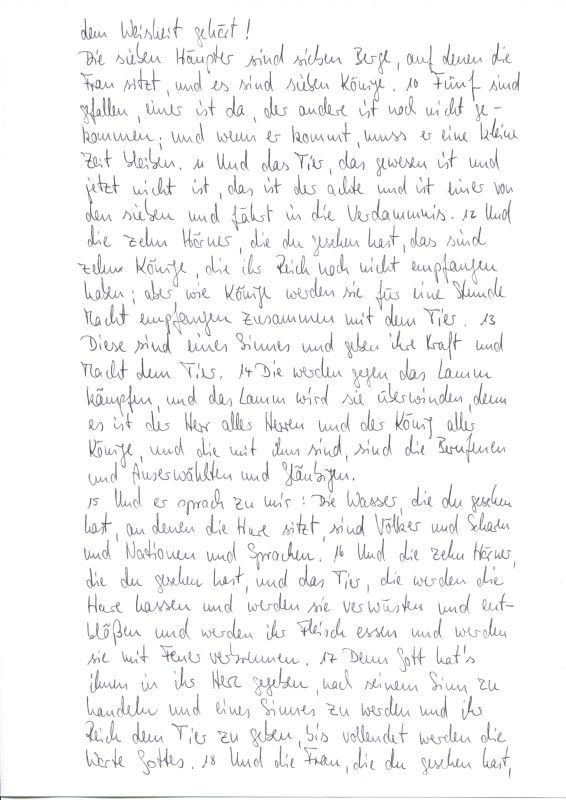 dem Weisheit gehört!
Die sieben Häupter sind sieben Berge, auf denen die
Frau sitzt, und es sind sieben Könige. 10 Fünf sind
gefallen, einer ist da, der andere ist noch nicht ge-
kommen; und wenn er kommt, muss er eine kleine
Zeit bleiben. 11 Und das Tier, das gewesen ist und
jetzt nicht ist, das ist der achte und ist einer von
den sieben und fährt in die Verdammnis. 12 Und
die zehn Hörner, die du gesehen hast, das sind
zehn Könige, die ihr Reich noch nicht empfangen
haben; aber wie Könige werden sie für eine Stunde
Macht empfangen zusammen mit dem Tier. 13
Diese sind eines Sinnes und geben ihre Kraft und
Macht dem Tier. 14 Die werden gegen das Lamm
kämpfen, und das Lamm wird sie überwinden, denn
es ist der Herr aller Herren und der König aller
Könige, und die mit ihm sind, sind die Berufenen
und Auserwählten und Gläubigen.
15 Und er sprach zu mir: Die Wasser, die du gesehen
hast, an denen die Hure sitzt, sind Völker und Scharen
und Nationen und Sprachen. 16 Und die zehn Hörner,
die du gesehen hast, und das Tier, die werden die
Hure hassen und werden sie verwüsten und ent-
blößen und werden ihr Fleisch essen und werden
sie mit Feuer verbrennen. 17 Denn Gott hat's
ihnen in ihr Herz gegeben, nach seinem Sinn zu
handeln und eines Sinnes zu werden und ihr
Reich dem Tier zu geben, bis vollendet werden die
Worte Gottes. 18 Und die Frau, die du gesehen hast,